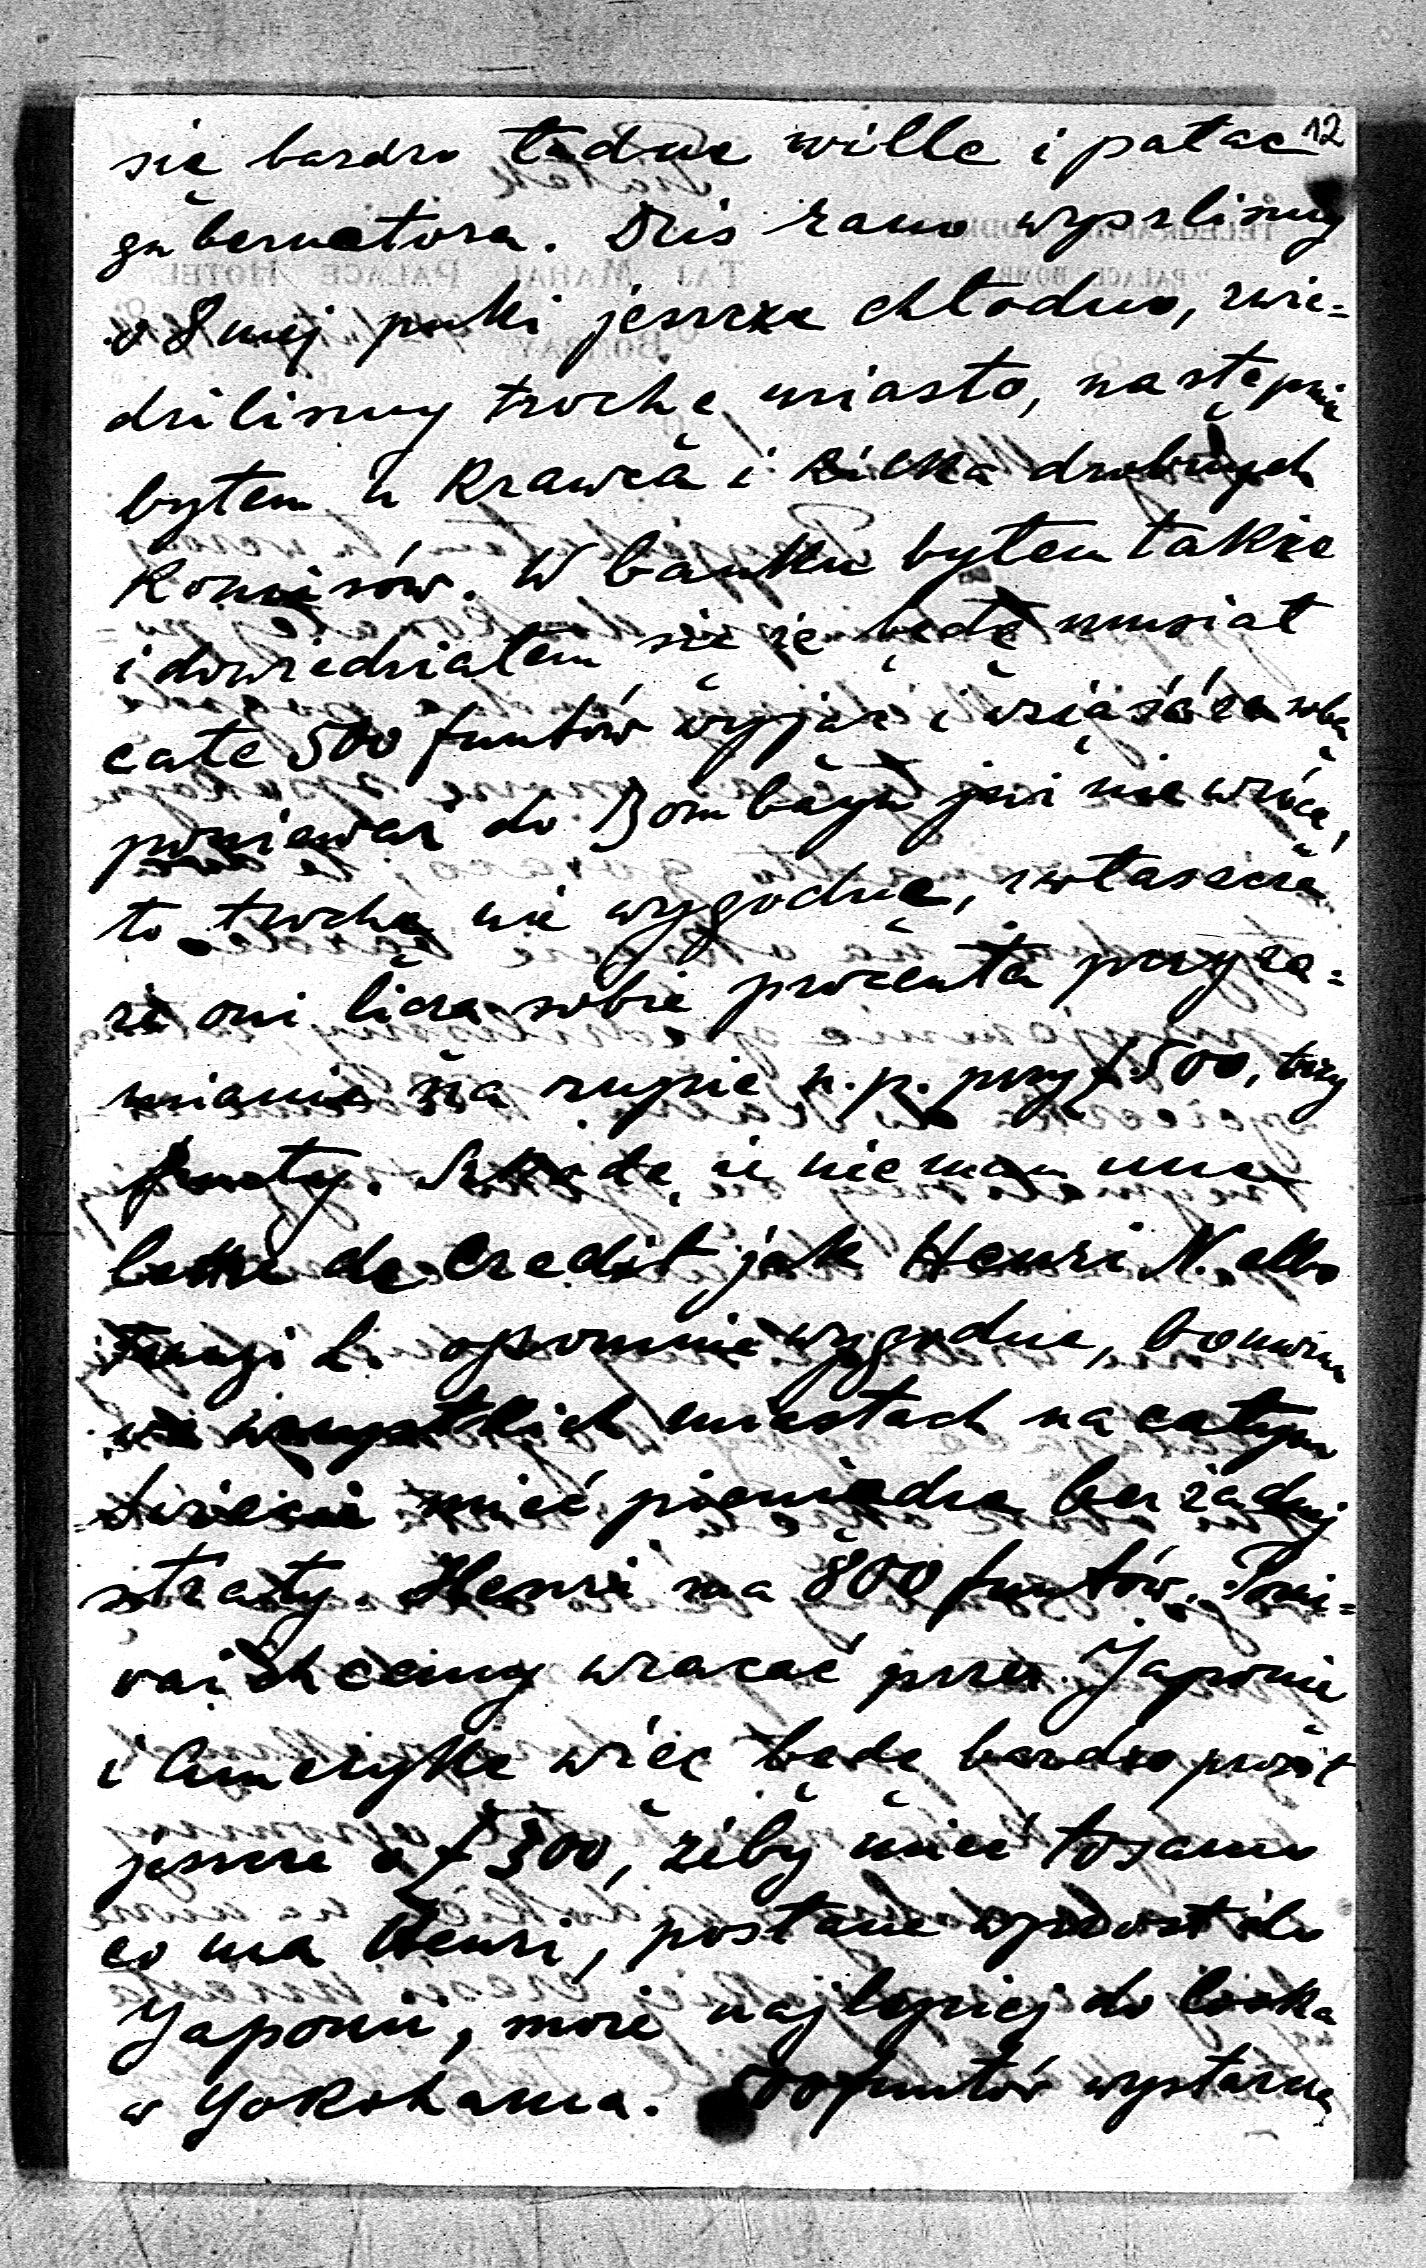 12
się bardzo ładne wille i pałac
gubernatora. Dziś rano wyszliśmy
o 8mej puki jeszcze chłodno, zwie=
dziliśmy trochę miasto, następnie
byłem u Krawca i kilka drobnych
W banku byłem także
i dowiedziałem się że będę musiał
całe 500 funtów wyjąć i wziąść ze sobą
ponieważ do Bombayu już nie wrócę,
to trochę nie wygodne, zwłaszcza
że oni liczą sobie procenta przy za=
mianie na rupie n.p. przy £500, trzy
funty. Szkoda, że nie mam une
lettre de Credit jak Henri N. albo
L. ogromnie wygodne, bo można
we wszystkich miastach na całym
świecie mieć pieniądze bez żadnej
straty. Henri ma 800 funtów. Ponie=
waż chcemy wracać przez Japonię
i Amerykę więc będę bardzo prosił
jeszcze o £300, żeby mieć tosamo
co ma Henri, posłane wprost do
Japonii, może najlepiej do Cooka
w Yokohama. 500 funtów wystarczą